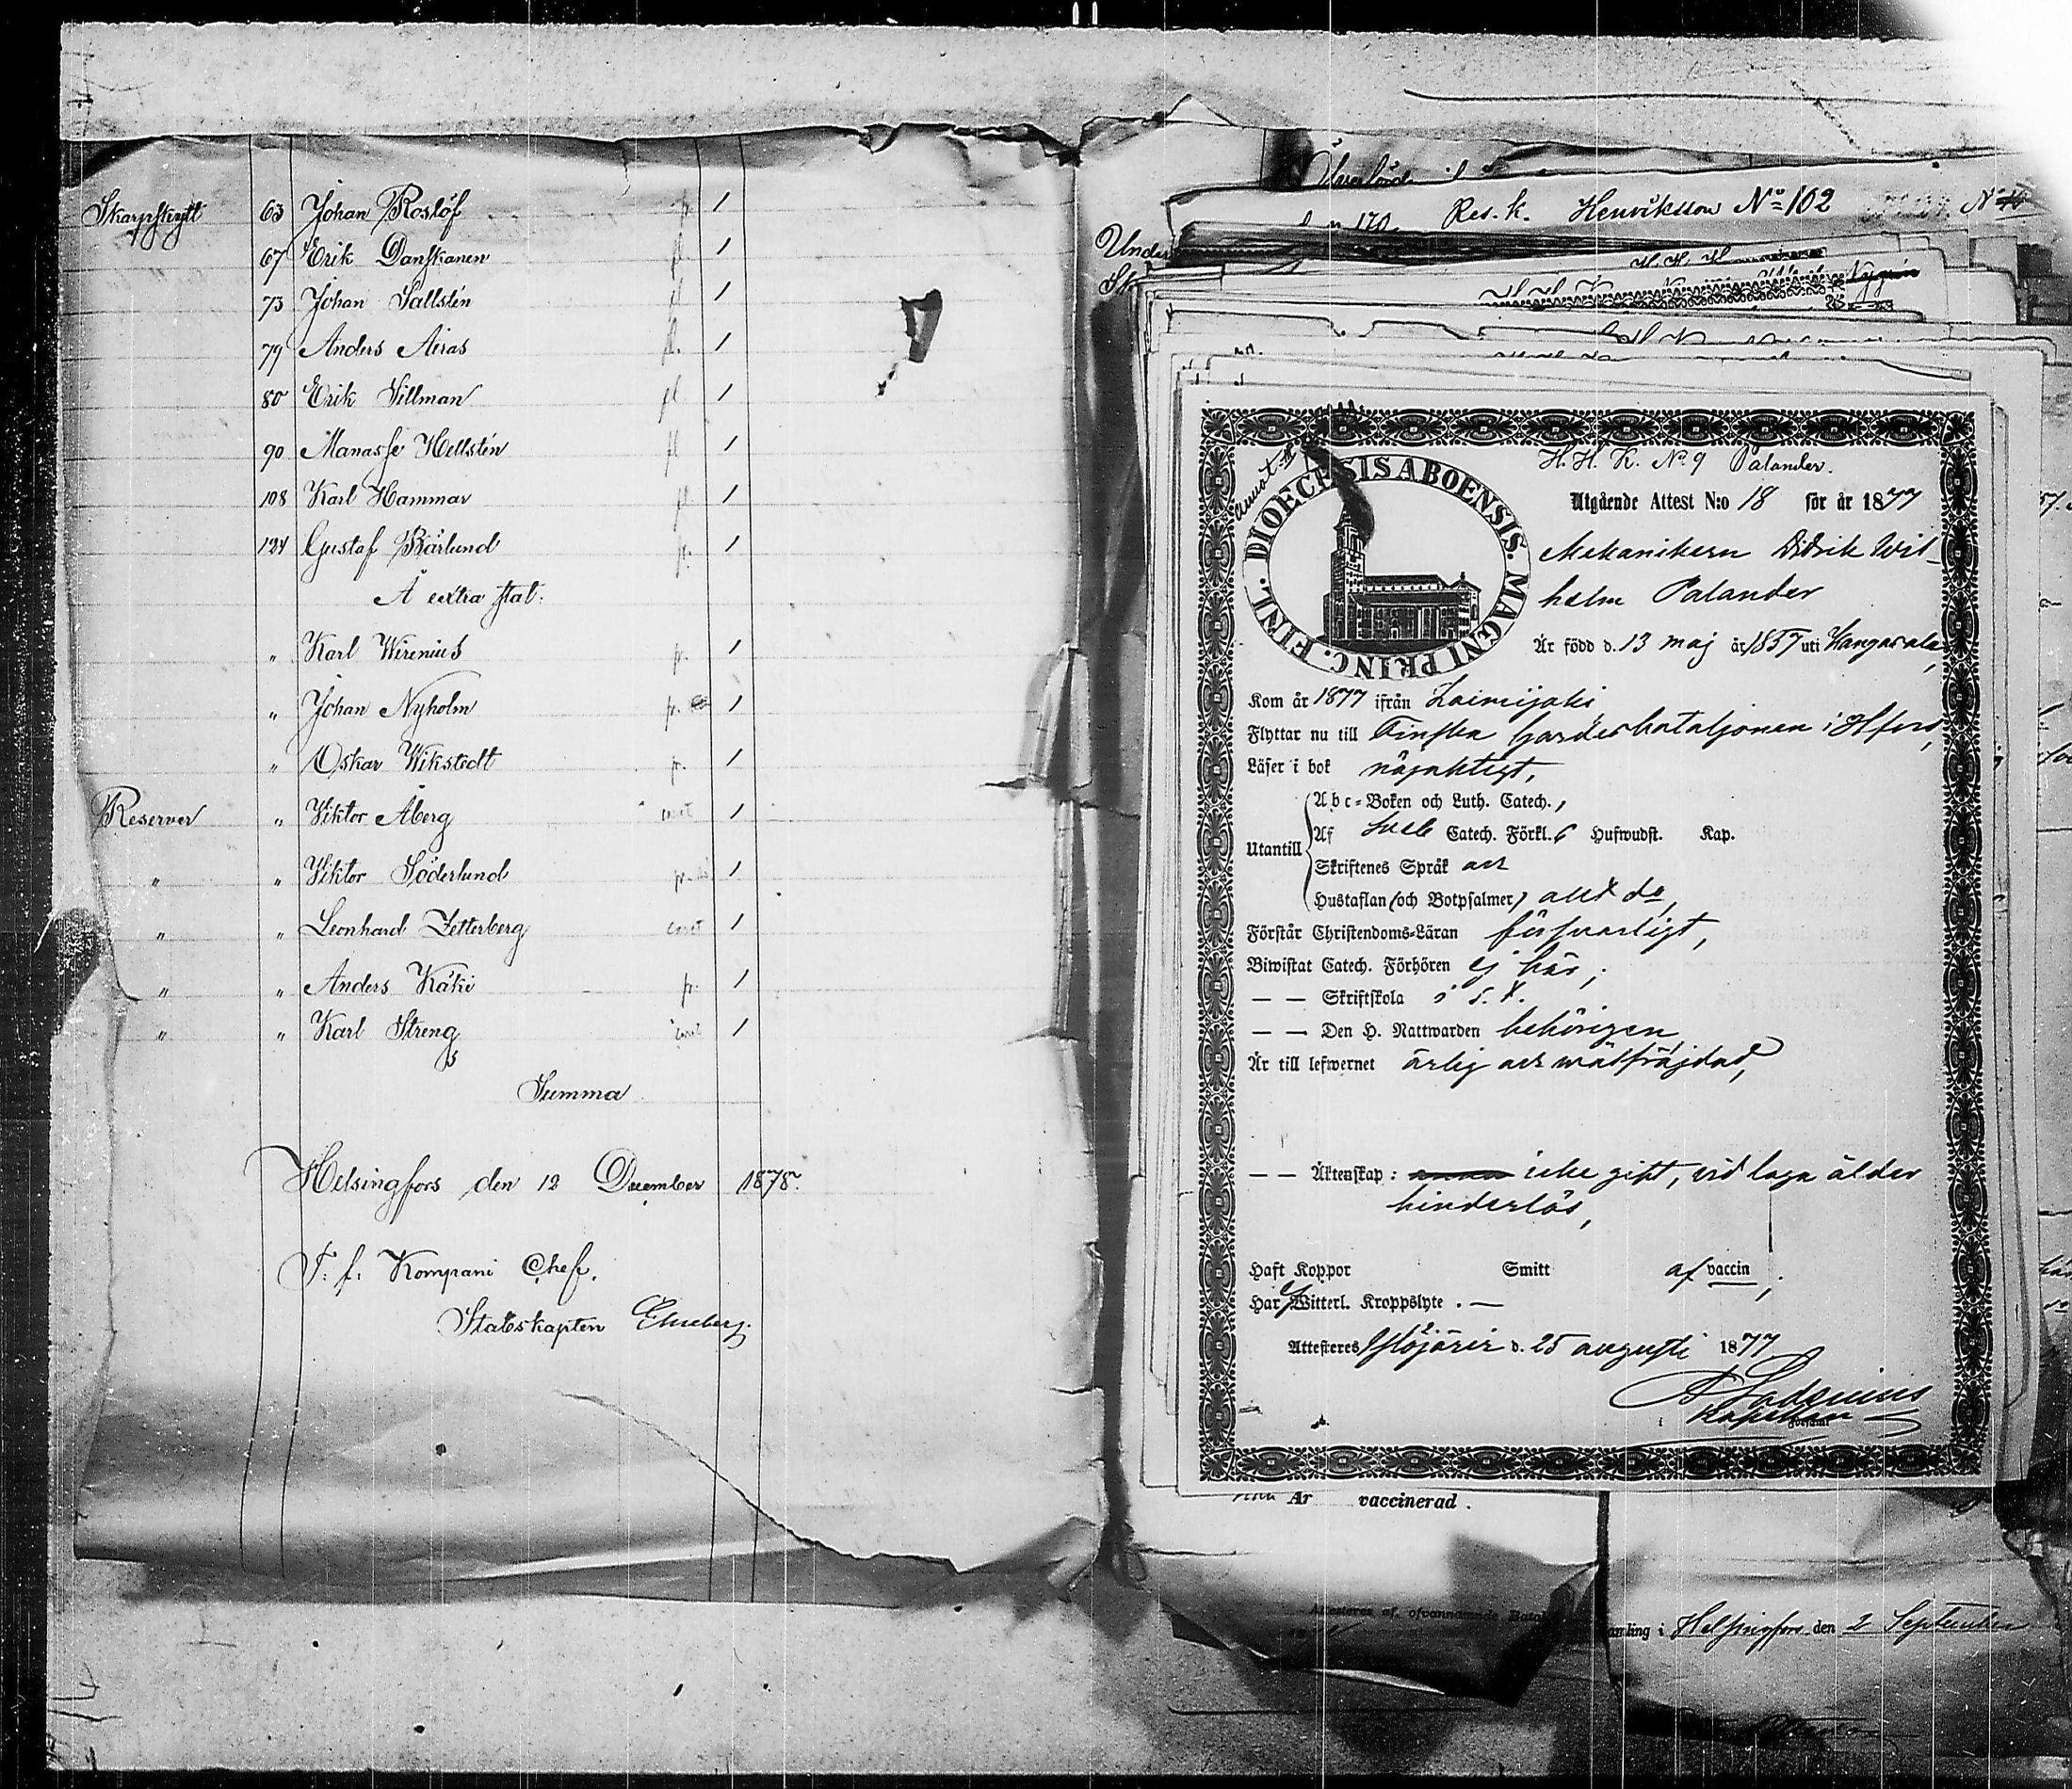 Skarpskytt 63 Johan Roslöf pr. 1
67 Erik Danskanen pl. 1
73 Johan Sallstén pl 1
79 Anders Airas pl. 1
80 Erik Sillman pl. 1
90 Manasse Hellstén pl 1
108 Karl Hammar pl. 1
124 Gustaf Bärlund pr. 1
Å extra stat:
" Karl Wirenius pr. 1
" Johan Nyholm pr. 1
" Oskar Wikstedt pr. 1
Reserver " Viktor Åberg 1
" " Viktor Söderlund pr. 1
" " Leonhard Zetterberg 1
" " Anders Käki pr. 1
" " Karl Streng 1
Summa
Helsingfors den 12 December 1878.
T: f: Kompani Chef,
Stabskapten
Res. k. Henriksson No 102
Under
Sk
H. H. K. No 9 Palander.
DIOECESIS ABOENSIS. MAGNI PRINC. FINL.
Utgående Attest N:o 18 för år 1877
Mekanikern Didrik Wil-
helm Palander
Är född d. 13 maj år 1857 uti Kangasala,
Kom år 1877 ifrån Loimijoki
Flyttar nu till Finska Gardesbataljonen i Hfors,
Läser i bok nöjaktigt,
Utantill
Abc-Boken och Luth. Catech.,
Af Catech. Förkl. 6 Hufwudst. Kap.
Skriftenes Språk
Hustaflan (och Botpsalmer) allt do,
Förstår Christendoms-Läran försvarligt,
Biwistat Catech. Förhören ej här,
— — Skriftskola
— — Den H. Nattwarden behörigen,
Är till lefwernet ärlig och wälfräjdad,
— — Äktenskap: icke gift, vid laga ålder
hinderlös,
Haft Koppor Smitt af vaccin,
Har ej Witterl. Kroppslyte. —
Attesteres Ylöjärvi d. 25 augusti 1877
Kapellan
i Församl
Är vaccinerad.
Attesteras af, ofvannämnde
amling i Helsingfors den 2 September